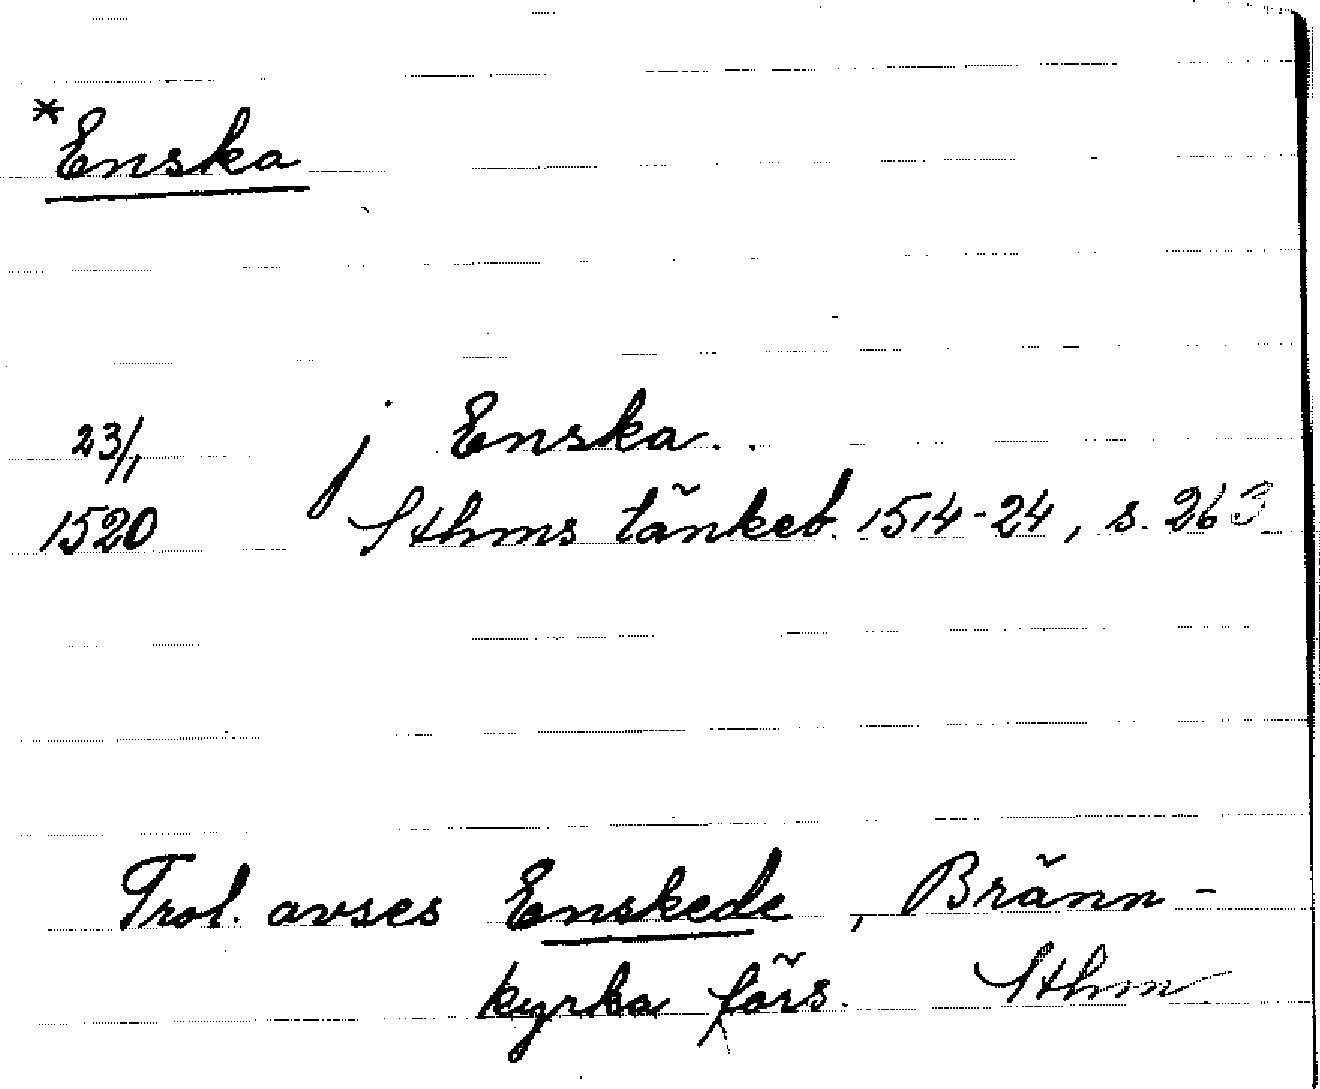 *Enska
23/1 j Enska.
1520 Sthms tänkeb. 1514-24, s. 263
Trol. avses Enskede, Bränn-
kyrka förs. Sthm